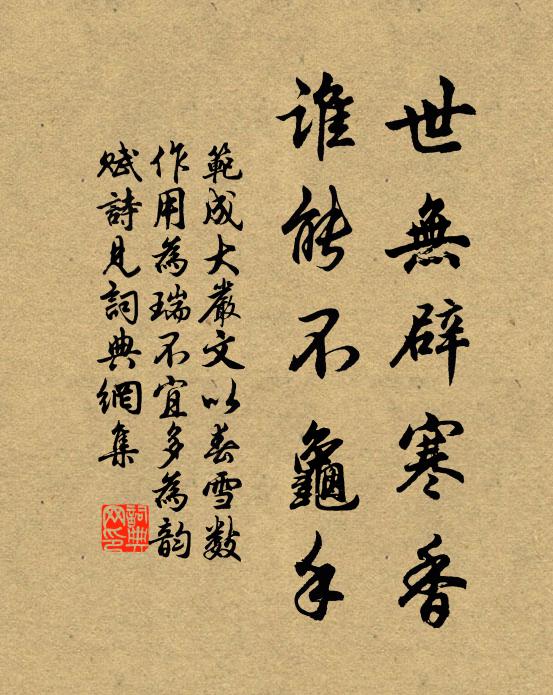 世無辟寒香
誰能不龜手
範成大嚴文以春雪數
作用為瑞不宜多為韵
賦詩見詞典網集
詞典
網印